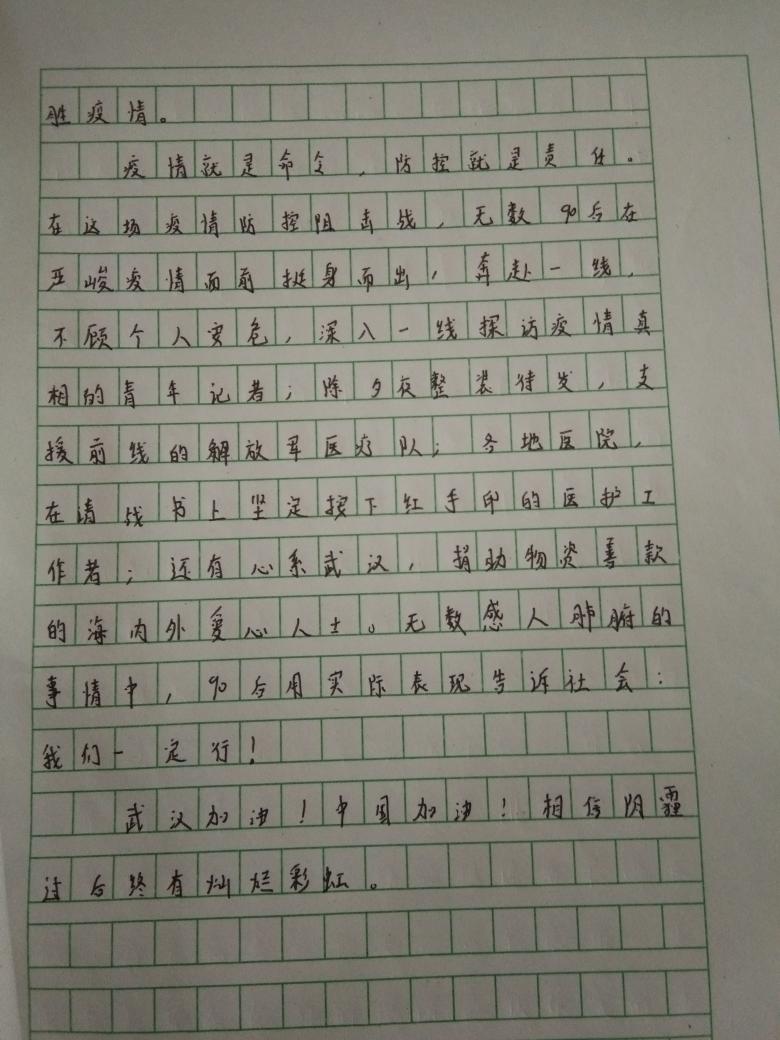 胜疫情。
疫情就是命令，防控就是责任。
在这场疫情防控阻击战，无数90后在
严峻疫情面前挺身而出，奔赴一线，
不顾个人安危，深入一线探访疫情真
相的青年记者；除夕夜整装待发，支
援前线的解放军医疗队；各地医院，
在请战书上坚定按下红手印的医护工
作者；还有心系武汉，捐助物资善款
的海内外爱心人士。无数感人肺腑的
事情中，90后用实际表现告诉社会：
我们一定行！
武汉加油！中国加油！相信阴霾
过后终有灿烂彩虹。